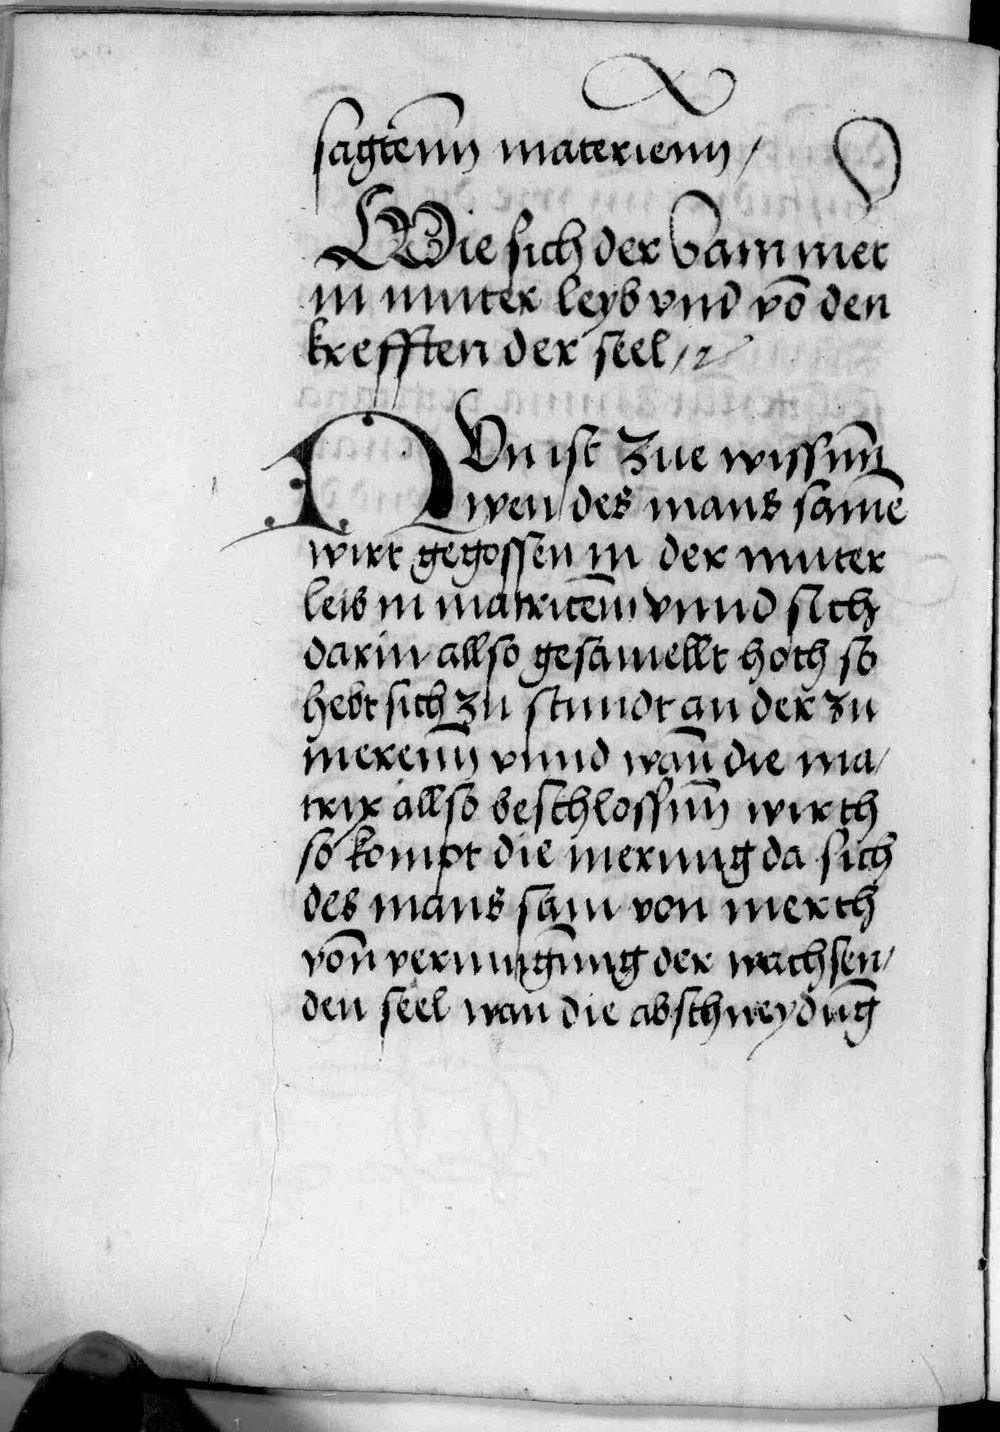 sagtenn materienn /
Wie sich der Sam meret
in muter leyb vnd vō den
krefften der seel /
NVn ist zue wissenn
wen des mans samē
wirt gegossen in der muter
leib in matricem vnnd sich
darin allso gesamellt hoth so
hebt sich zu stundt an der zu
merenn vnnd wan̄ die ma/
trix allso beschlossenn wirth
so kompt die merung da sich
des mans sam von merth
von̄ der wachsen/
den seel wan die abschneydūg